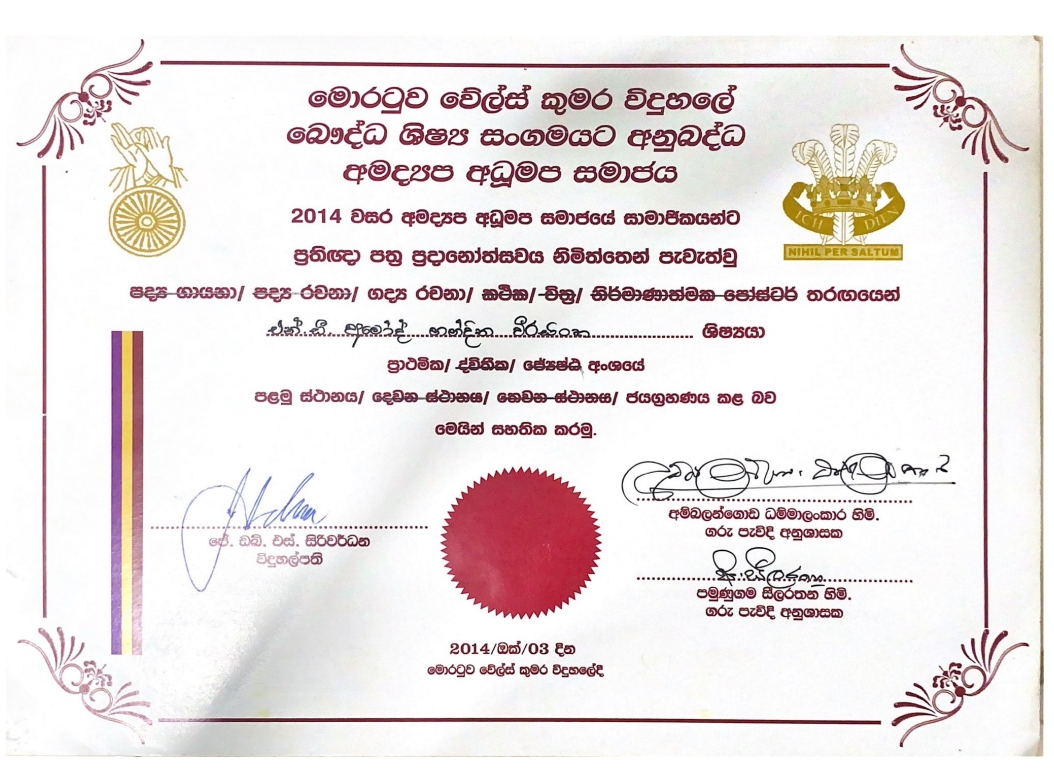 මොරටුව වේල්ස් කුමර විදුහලේ
බෞද්ධ ශිෂ්‍ය සංගමයට අනුබද්ධ
අමද්‍යප අධූමප සමාජය
ICH DIEN
NIHIL PER SALTUM
2014 වසර අමද්‍යප අධූමප සමාජයේ සාමාජිකයන්ට
ප්‍රතිඥා පත්‍ර ප්‍රදානෝත්සවය නිමිත්තෙන් පැවැත්වූ
පද්‍ය ගායනා/ පද්‍ය රචනා/ ගද්‍ය රචනා/ කථික/ චිත්‍ර/ නිර්මාණාත්මක පෝස්ටර් තරඟයෙන්
එන්. ඩී. අමෝද් නන්දිත වීරසිංහ ශිෂ්‍යයා
ප්‍රාථමික/ ද්විතීක/ ජ්‍යෙෂ්ඨ අංශයේ
පළමු ස්ථානය/ දෙවන ස්ථානය/ තෙවන ස්ථානය/ ජයග්‍රහණය කළ බව
මෙයින් සහතික කරමු.
ජේ. ඩබ්. එස්. සිරිවර්ධන
විදුහල්පති
අම්බලන්ගොඩ ධම්මාලංකාර හිමි.
ගරු පැවිදි අනුශාසක
පමුණුගම සීලරතන හිමි.
ගරු පැවිදි අනුශාසක
2014/ඔක්/03 දින
මොරටුව වේල්ස් කුමර විදුහලේදී